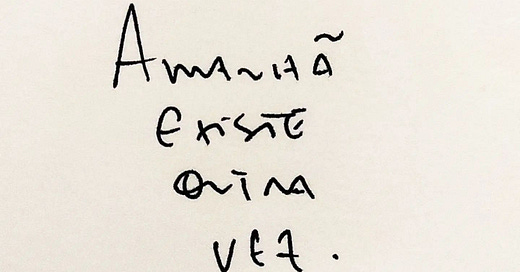 Amanhã
existe
outra
vez.